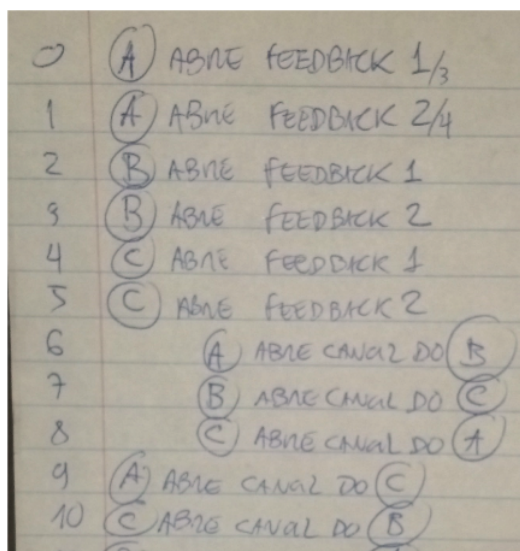 0 A ABRE FEEDBACK 1/3
1 A ABRE FEEDBACK 2/4
2 B ABRE FEEDBACK 1
3 B ABRE FEEDBACK 2
4 C ABRE FEEDBACK 1
5 C ABRE FEEDBACK 2
6 A ABRE CANAL DO B
7 B ABRE CANAL DO C
8 C ABRE CANAL DO A
9 A ABRE CANAL DO C
10 C ABRE CANAL DO B